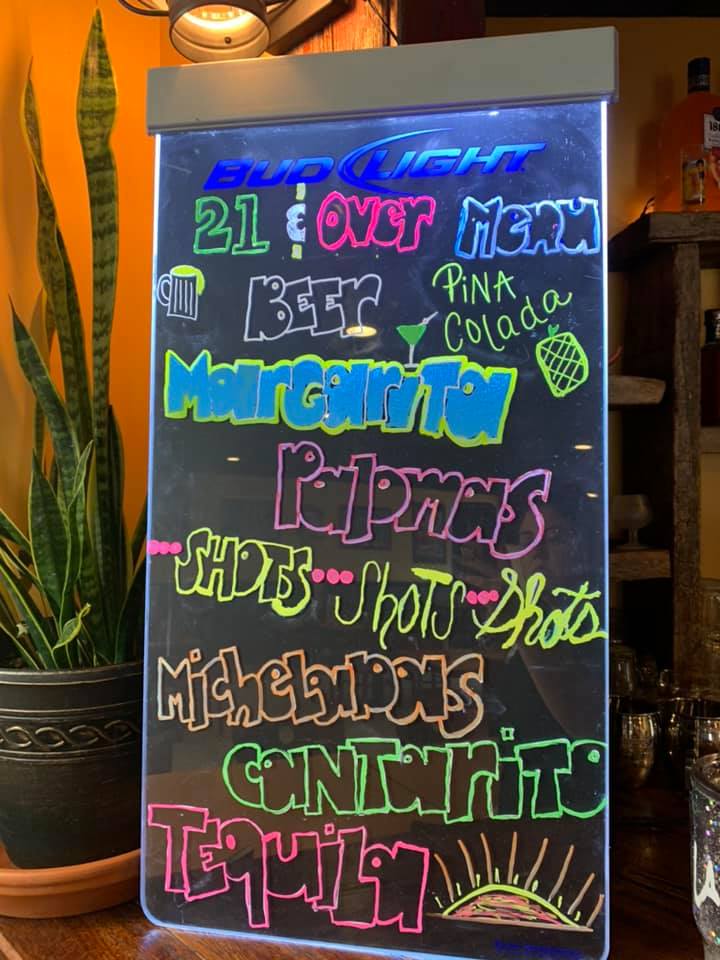 BUD LIGHT
21 & Over Menu
BEEr
PiNA
Colada
Margarita
Palomas
SHOTS ShoTS Shots
Micheladas
CANTariTO
TEquila